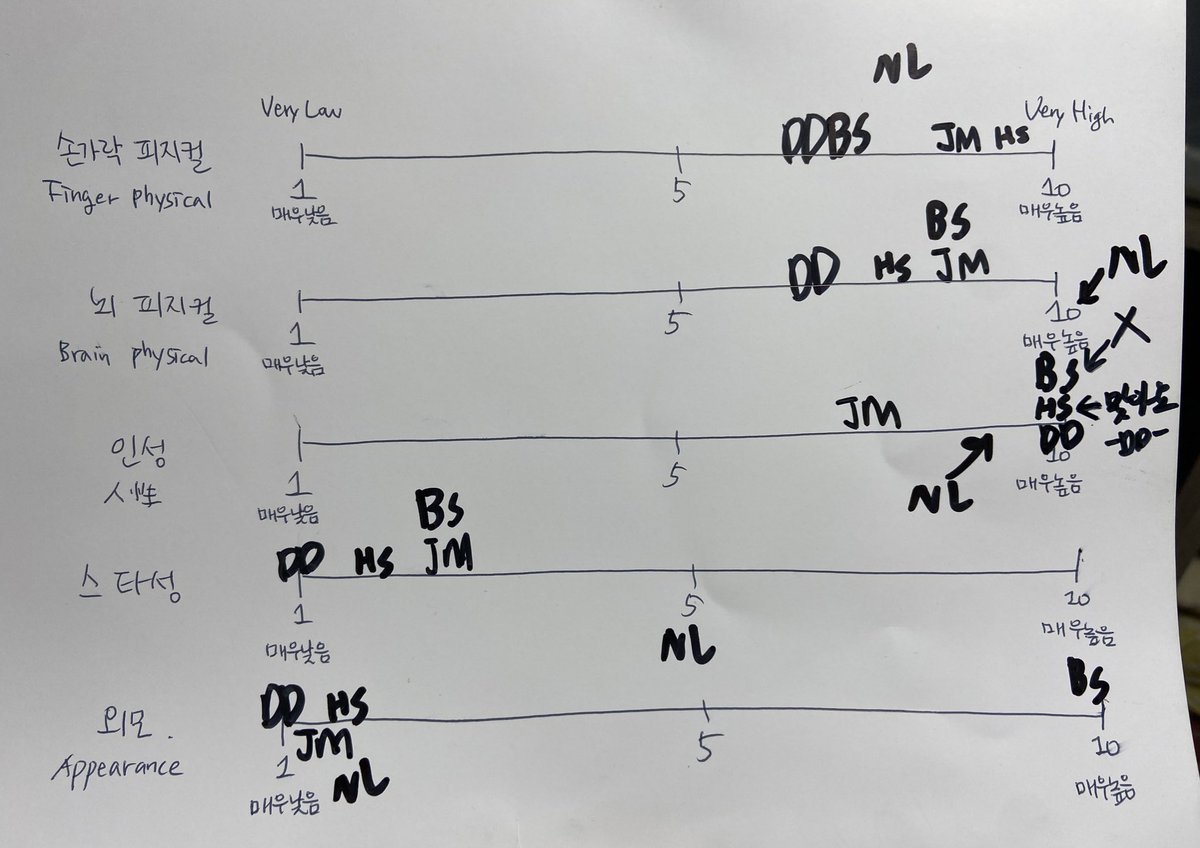 NL
Very Low
Very High
손가락 피지컬
DDBS JM HS
Finger physical
1 5 10
매우낮음 매우높음
BS
뇌 피지컬
DD HS JM
NL
Brain physical
1 5 10
매우낮음 매우높음
X
BS
인성
JM
HS ← 맞아도
DD -DD-
人性
1 5 10
매우낮음 매우높음
NL
BS
스타성
DD HS JM
1 5 10
매우낮음 매우높음
NL
외모.
DD HS BS
JM
Appearance
1 5 10
매우낮음 매우높음
NL